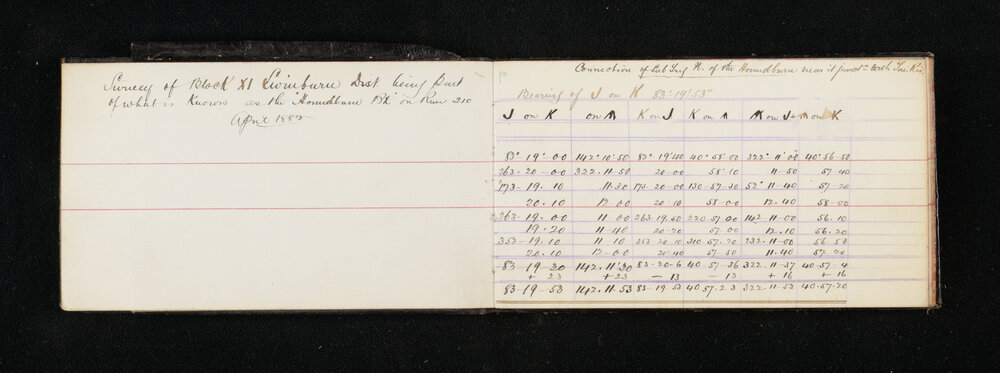 Survey of Block XI Swinburn Dist being Part
of what is Known as the "Homedburn Blk" on Run 210
April 1882
Connection of Sub Trig N. of the Homedburn near it junct with
Bearing of J on K 83°19'53"
J on K on K on J K on on J on K
83° 19' 00 142° 10' 50 83° 19' 40 40° 58' 00 322° 11' 00 40° 56' 50
263. 20 - 00 322. 11. 50 20 - 00 58' 10 11 - 50 57 40
173 - 19. 10 11. 30 173 - 20 - 00 130 - 57 - 30 52° 11 - 40 57 - 20
20. 10 12. 00 20. 10 58 - 00 12. 40 58 - 00
263 - 19. 00 11 00 263 - 19. 60 220 57. 00 142 11 - 00 56. 10
19 - 20 11 - 40 20 - 20 57 00 12. 10 56. 20
353 - 19. 10 11 10 353 20. 10 310 - 57. 20 232. 11 - 00 56 - 50
20. 10 12 - 00 20 - 40 57. 50 11. 40 57. 20
83 - 19 - 30 142. 11' 30 83 - 20 - 6 40 - 57 - 36 322. 11 - 37 40 - 57 - 4
+ 23 + 23 - 13 - 13 + 16 + 16
83 - 19 - 53 142. 11. 53 83 - 19 53 40 57 - 23 322. 11 - 53 40 - 57 - 20